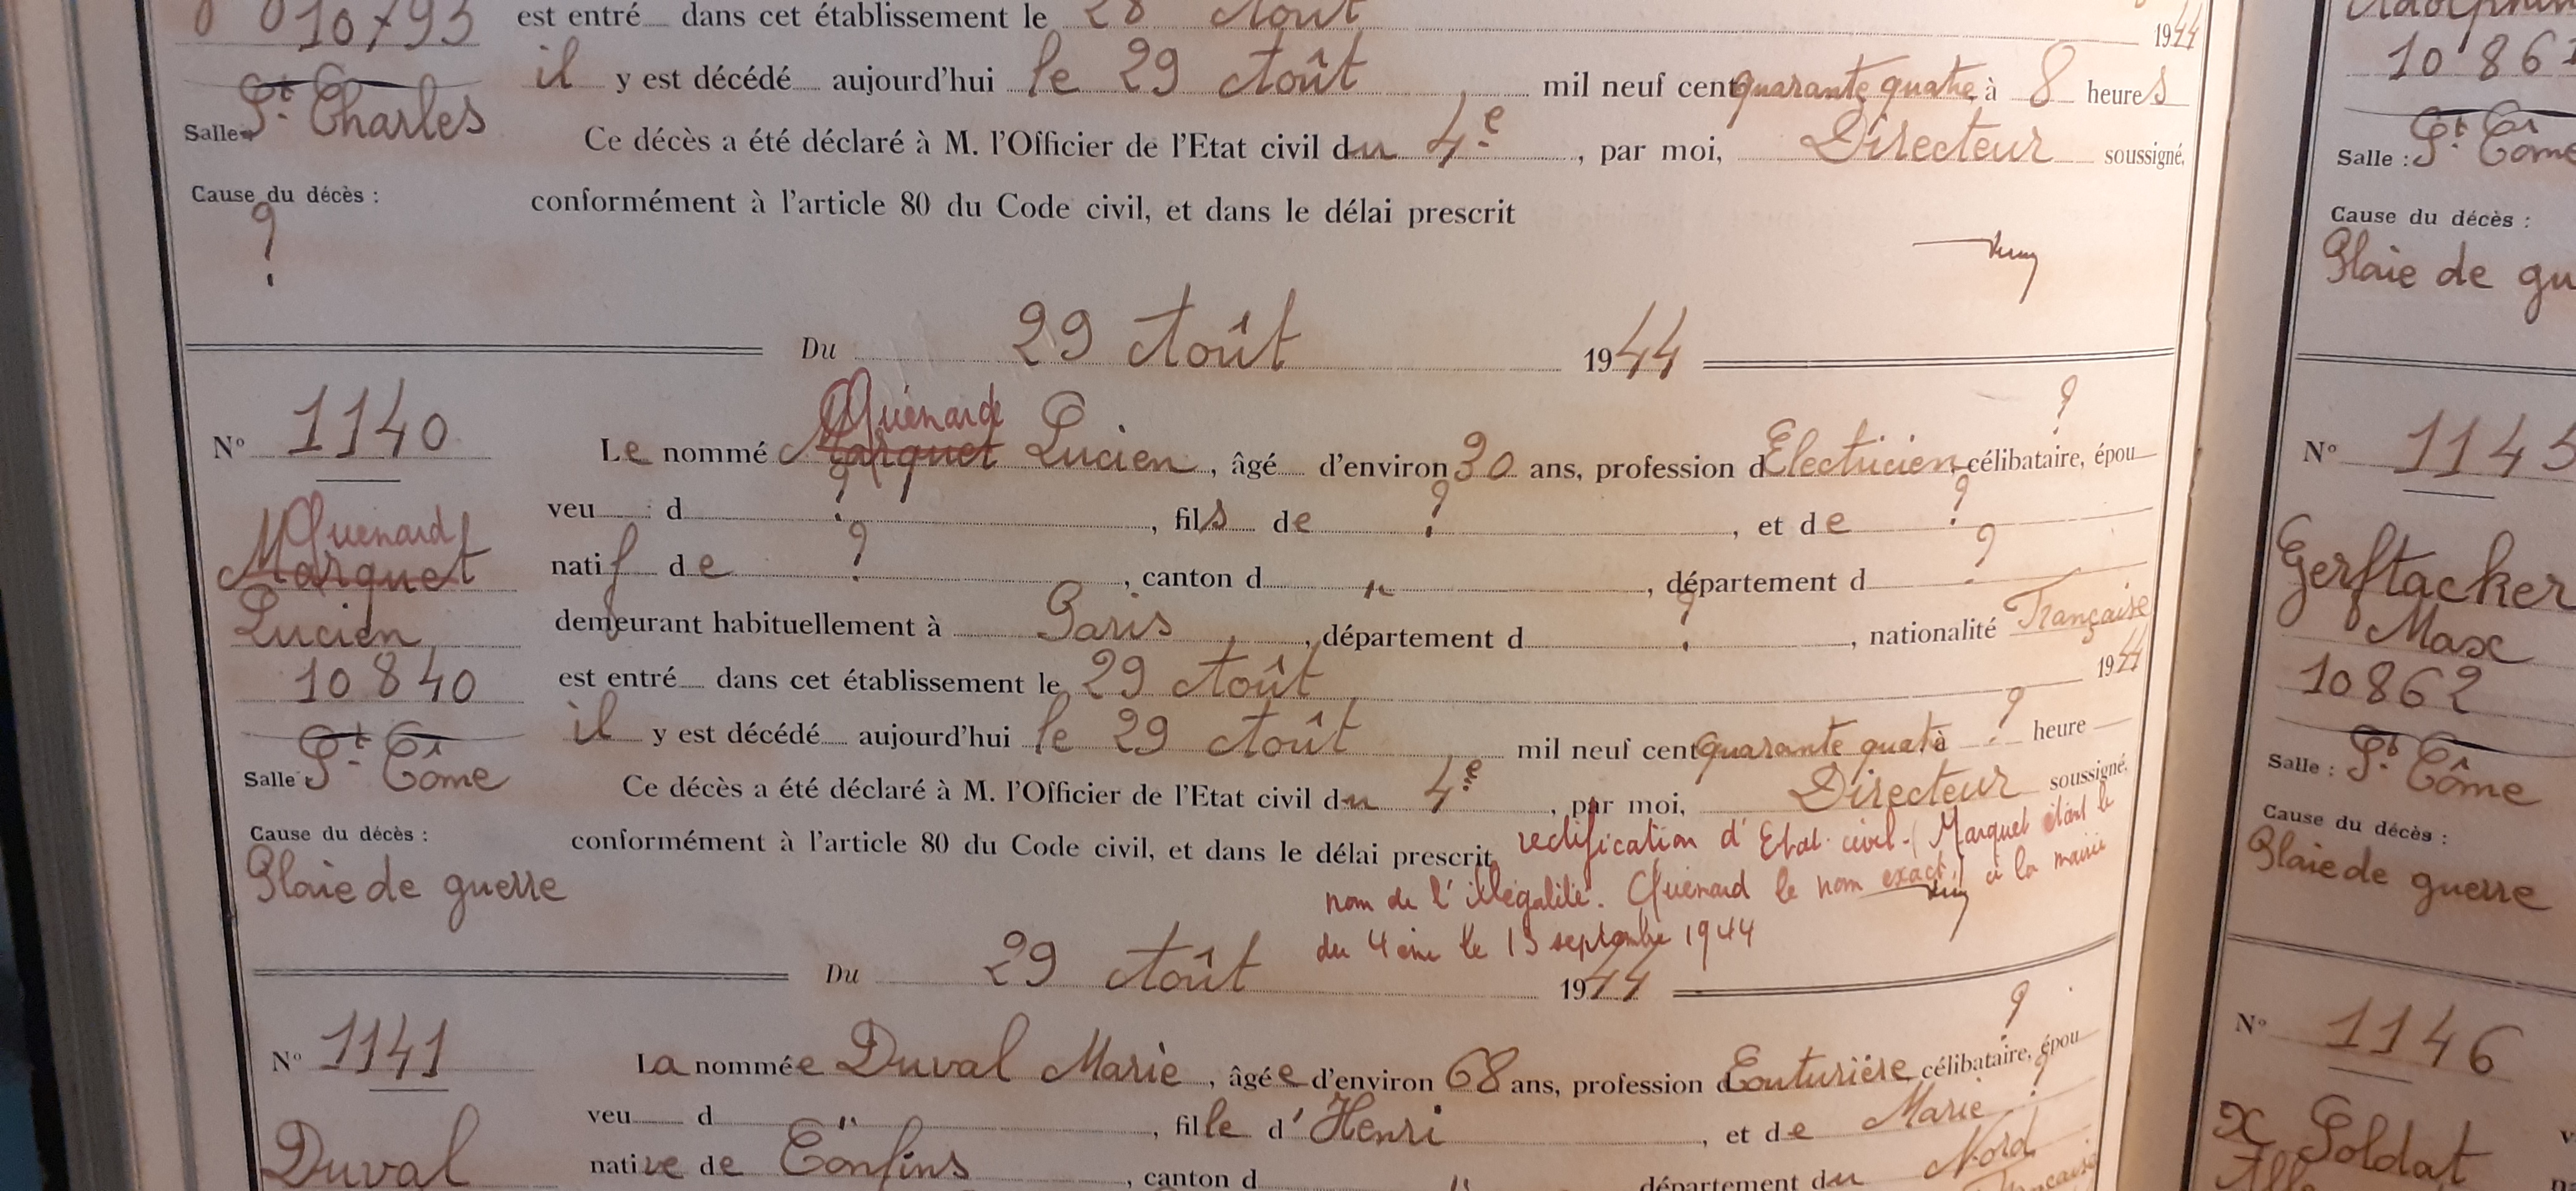 10793 est entré dans cet établissement le 28 Août 1944
il y est décédé aujourd'hui le 29 Août mil neuf cent quarante quatre à 8 heures
Salle St. Charles
Ce décès a été déclaré à M. l'Officier de l'Etat civil du 4e, par moi, Directeur soussigné.
Cause du décès :
conformément à l'article 80 du Code civil, et dans le délai prescrit
?
Du 29 Août 1944
N° 1140
Quénard
Le nommé Marquet Lucien, âgé d'environ 30 ans, profession d Electricien, célibataire, épou ?
veu d ?, fils de ?, et de ?
Quenard
Marquet
Lucien
10840
natif de ?, canton d ", département d ?
demeurant habituellement à Paris, département d ?, nationalité Française
est entré dans cet établissement le 29 Août 1944
il y est décédé aujourd'hui le 29 Août mil neuf cent quarante quatre à ? heure
Salle : St. Côme
Ce décès a été déclaré à M. l'Officier de l'Etat civil du 4e, par moi, Directeur soussigné.
Cause du décès :
Plaie de guerre
conformément à l'article 80 du Code civil, et dans le délai prescrit
rectification d'Etat civil - (Marquet étant le
nom de l'illégalité. Quénard le nom exact.) à la mairie
du 4ème le 13 septembre 1944
Du 29 Août 1944
N° 1141
La nommée Duval Marie, âgée d'environ 68 ans, profession d Couturière, célibataire, épou ?
Duval
veu d ", fille d' Henri, et de Marie ?
native de, canton d ", département du Nord
Française
10861
Salle : St. Côme
Cause du décès :
Plaie de gu
N° 1145
Gerftacker
Max
10862
Salle : St. Côme
Cause du décès :
Plaie de guerre
N° 1146
X Soldat